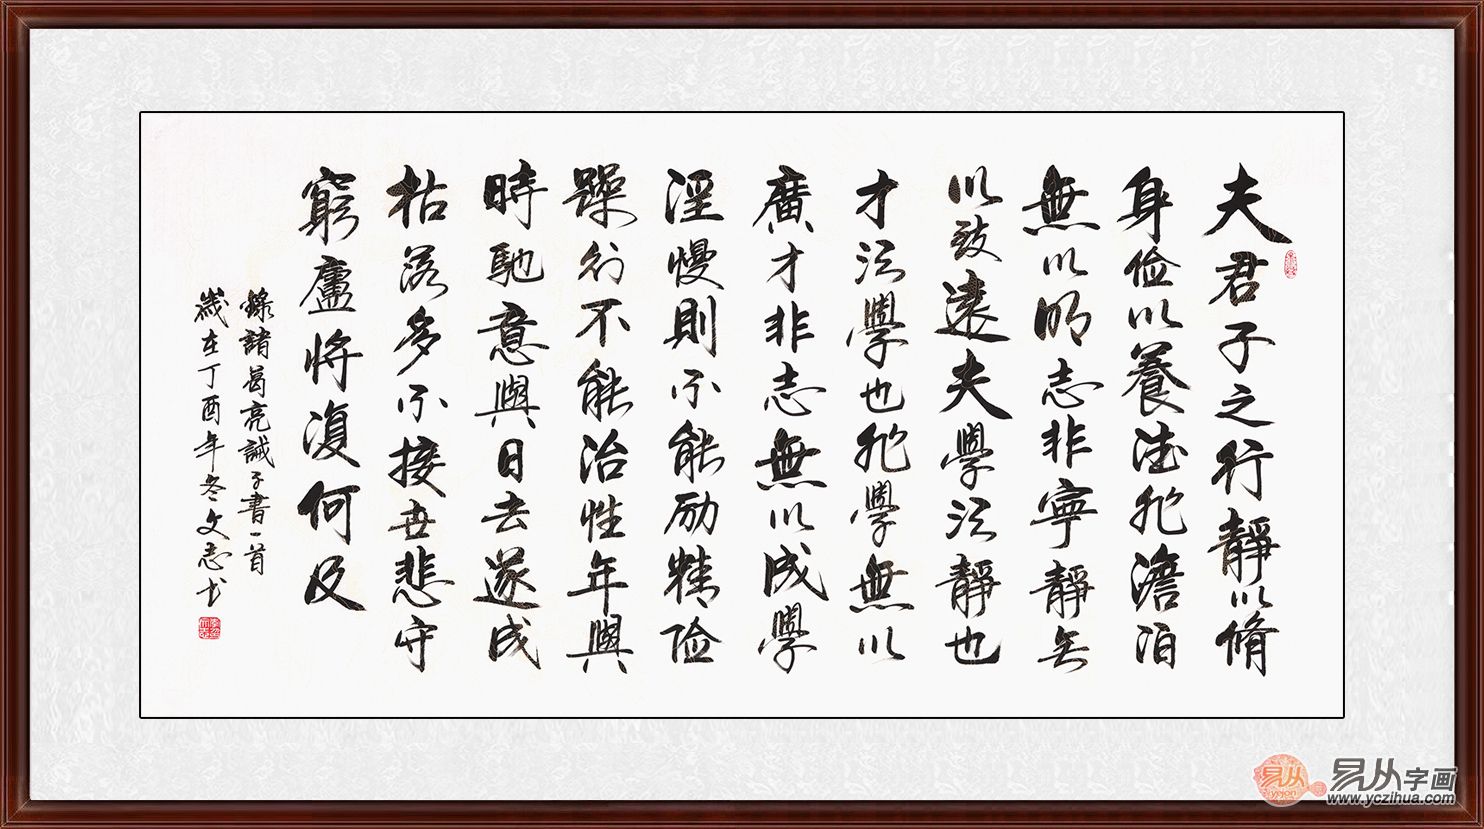 夫君子之行靜以脩
身俭以養德非澹泊
無以明志非寧靜无
以致遠夫學须靜也
才须學也非學無以
廣才非志無以成學
淫慢則不能励精险
躁行不能治性年與
時馳意與日去遂成
枯落多不接世悲守
窮廬将復何及
錄諸葛亮誡子書一首
歲在丁酉年冬文志书
易从字画
yicong
www.yczihua.com